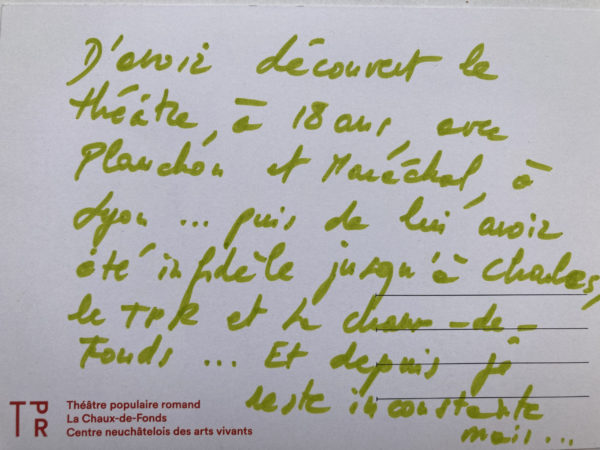 D'avoir découvert le
théâtre, à 18 ans, avec
Planchon et Maréchal, à
Lyon ... puis de lui avoir
été infidèle jusqu'à Charles,
le TPR et La Chaux-de-
Fonds ... Et depuis je
reste inconstante
mais ...
TPR
Théâtre populaire romand
La Chaux-de-Fonds
Centre neuchâtelois des arts vivants